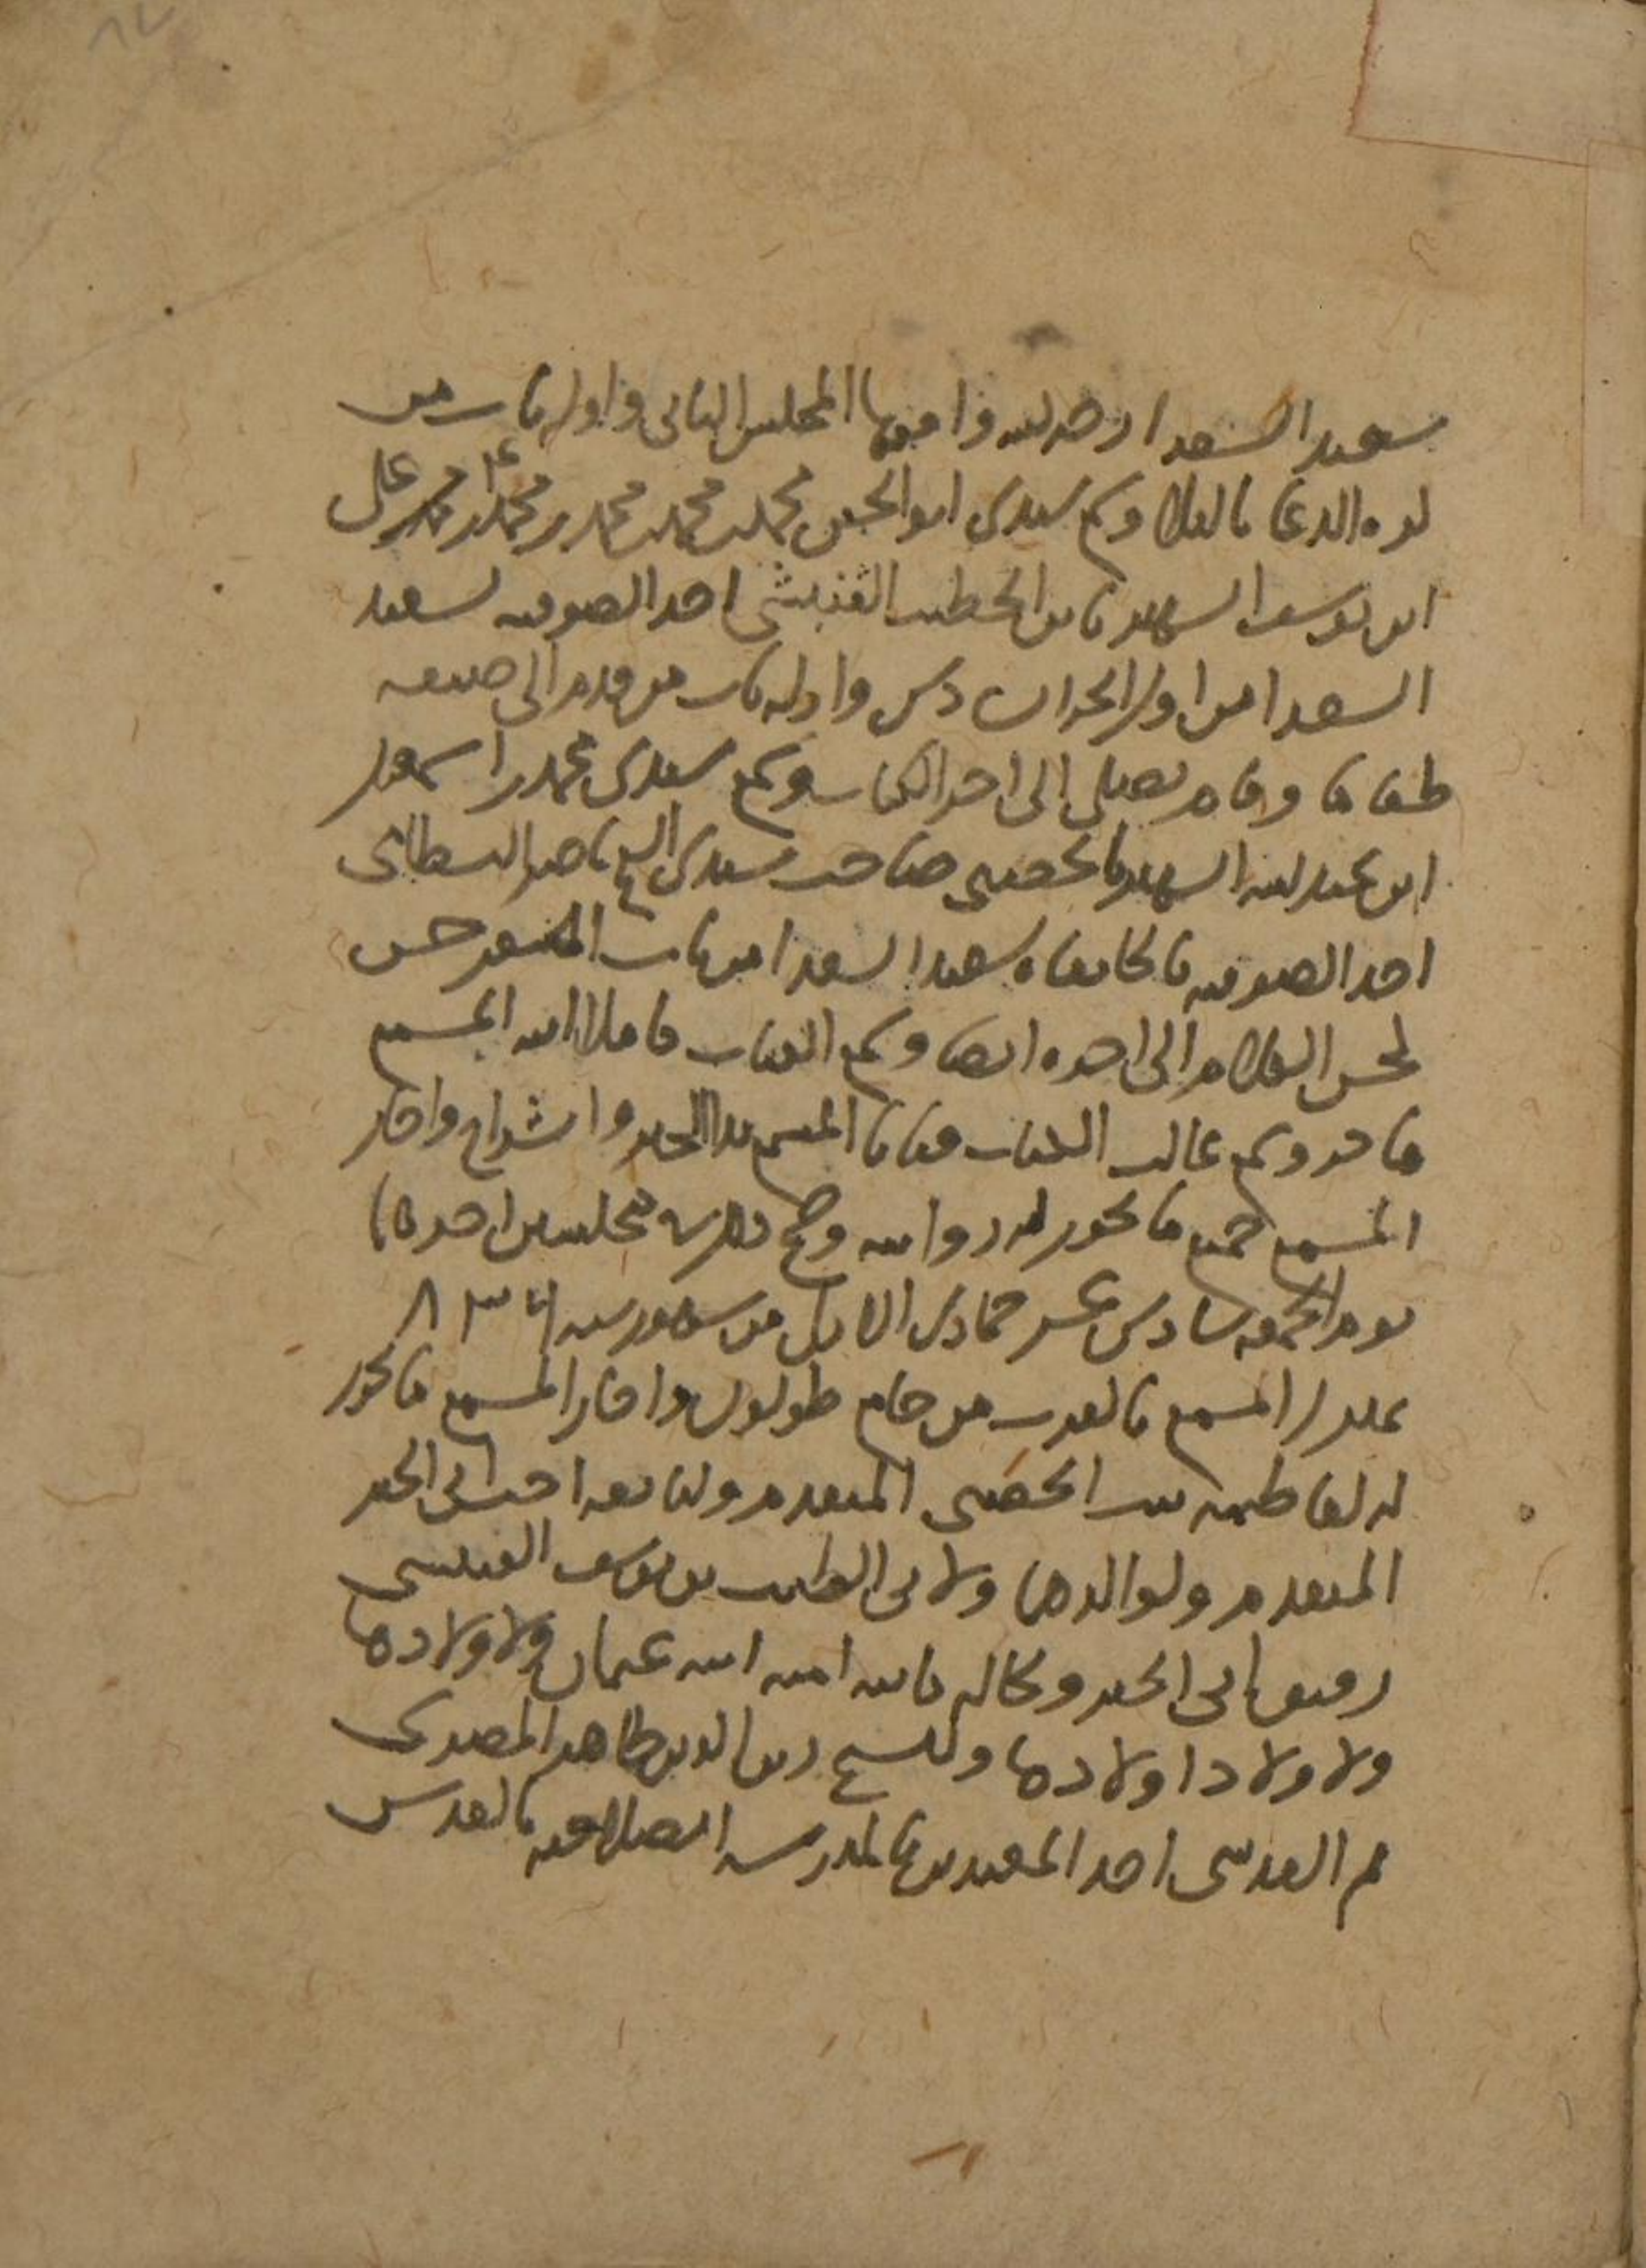 سعيد السعدا رحمه الله وافقها المجلس الثاني واوله باب من
كره الدعا بالبلا وسمع سيدي ابو الخير محمد بن محمد بن محمد بن محمد بن محمد بن علي
ابن يوسف الشهير بابن الخطيب القنبشي احد الصوفيه بسعيد
السعدا من اول الجزان دس واوله باب من قدم الى ضيفه
طعاما وقام يصلي الى اخر الكتاب وسمع سيدي محمد بن اسمعيل
ابن عبد الله الشهير بالحصني صاحب سيدي الشيخ ناصر البسطامي
احد الصوفيه بالخانقاه سعيد السعدا من باب الشعر حسن
كحسن الكلام الى اخره ايضا وسمع الكتاب كاملا ابنه المسمع
فاخر وسمع غالب الكتاب فتاتا المسمع بدا الخير وانشراح واجاز
المسمع جميع ما يجوز له روايته وصح ذلك في مجلسين اخرهما
يوم الجمعه سادس عشر جمادى الاول من شهور سنه ٨٣٤
بمنزل المسمع بالقرب من جامع طولون واجاز المسمع ما يجوز
له لفاطمه بنت الحصني المتقدم ولنا نعه اخت ابي الخير
المتقدم ولوالدهما ولابي الطيب بن يوسف القنبشي
رفيق ابي الخير وكاليه بابنه امنه ابنه عثمان ولاولادها
ولاولاد اولادها وللشيخ زين الدين طاهر المصري
ثم القدسي احد المعيدين بالمدرسه الصلاحيه بالقدس